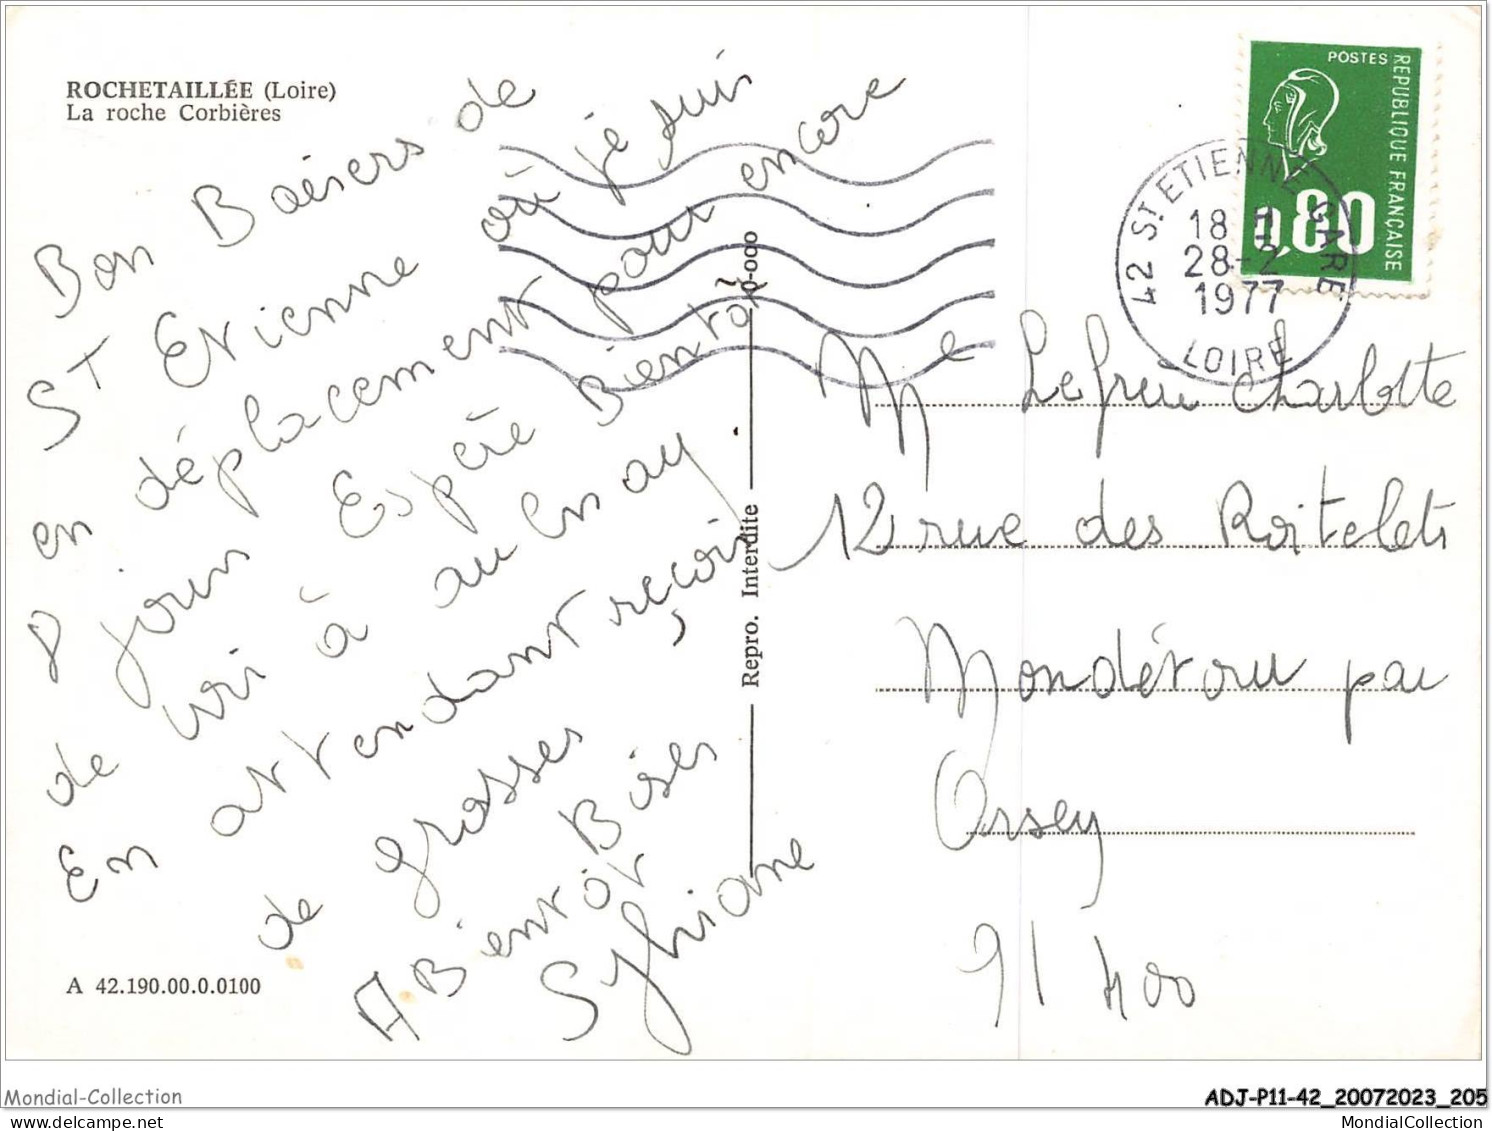 ROCHETAILLÉE (Loire)
La roche Corbières
Bon Baisers de
St Etienne où je suis
en déplacement pour encore
8 jours Espère Bientôt
de à au
En attendant reçois
de grosses Bises
A Bientôt
Sylviane
A 42.190.00.0.0100
Repro. Interdite
0-000
POSTES
REPUBLIQUE FRANÇAISE
0,80
42 ST ETIENNE GARE
18 H
28-2
1977
LOIRE
Me Charlotte
12 rue des Roitelets
Mondétour par
Orsey
91 400
Mondial-Collection
ADJ-P11-42_20072023_205
MondialCollection